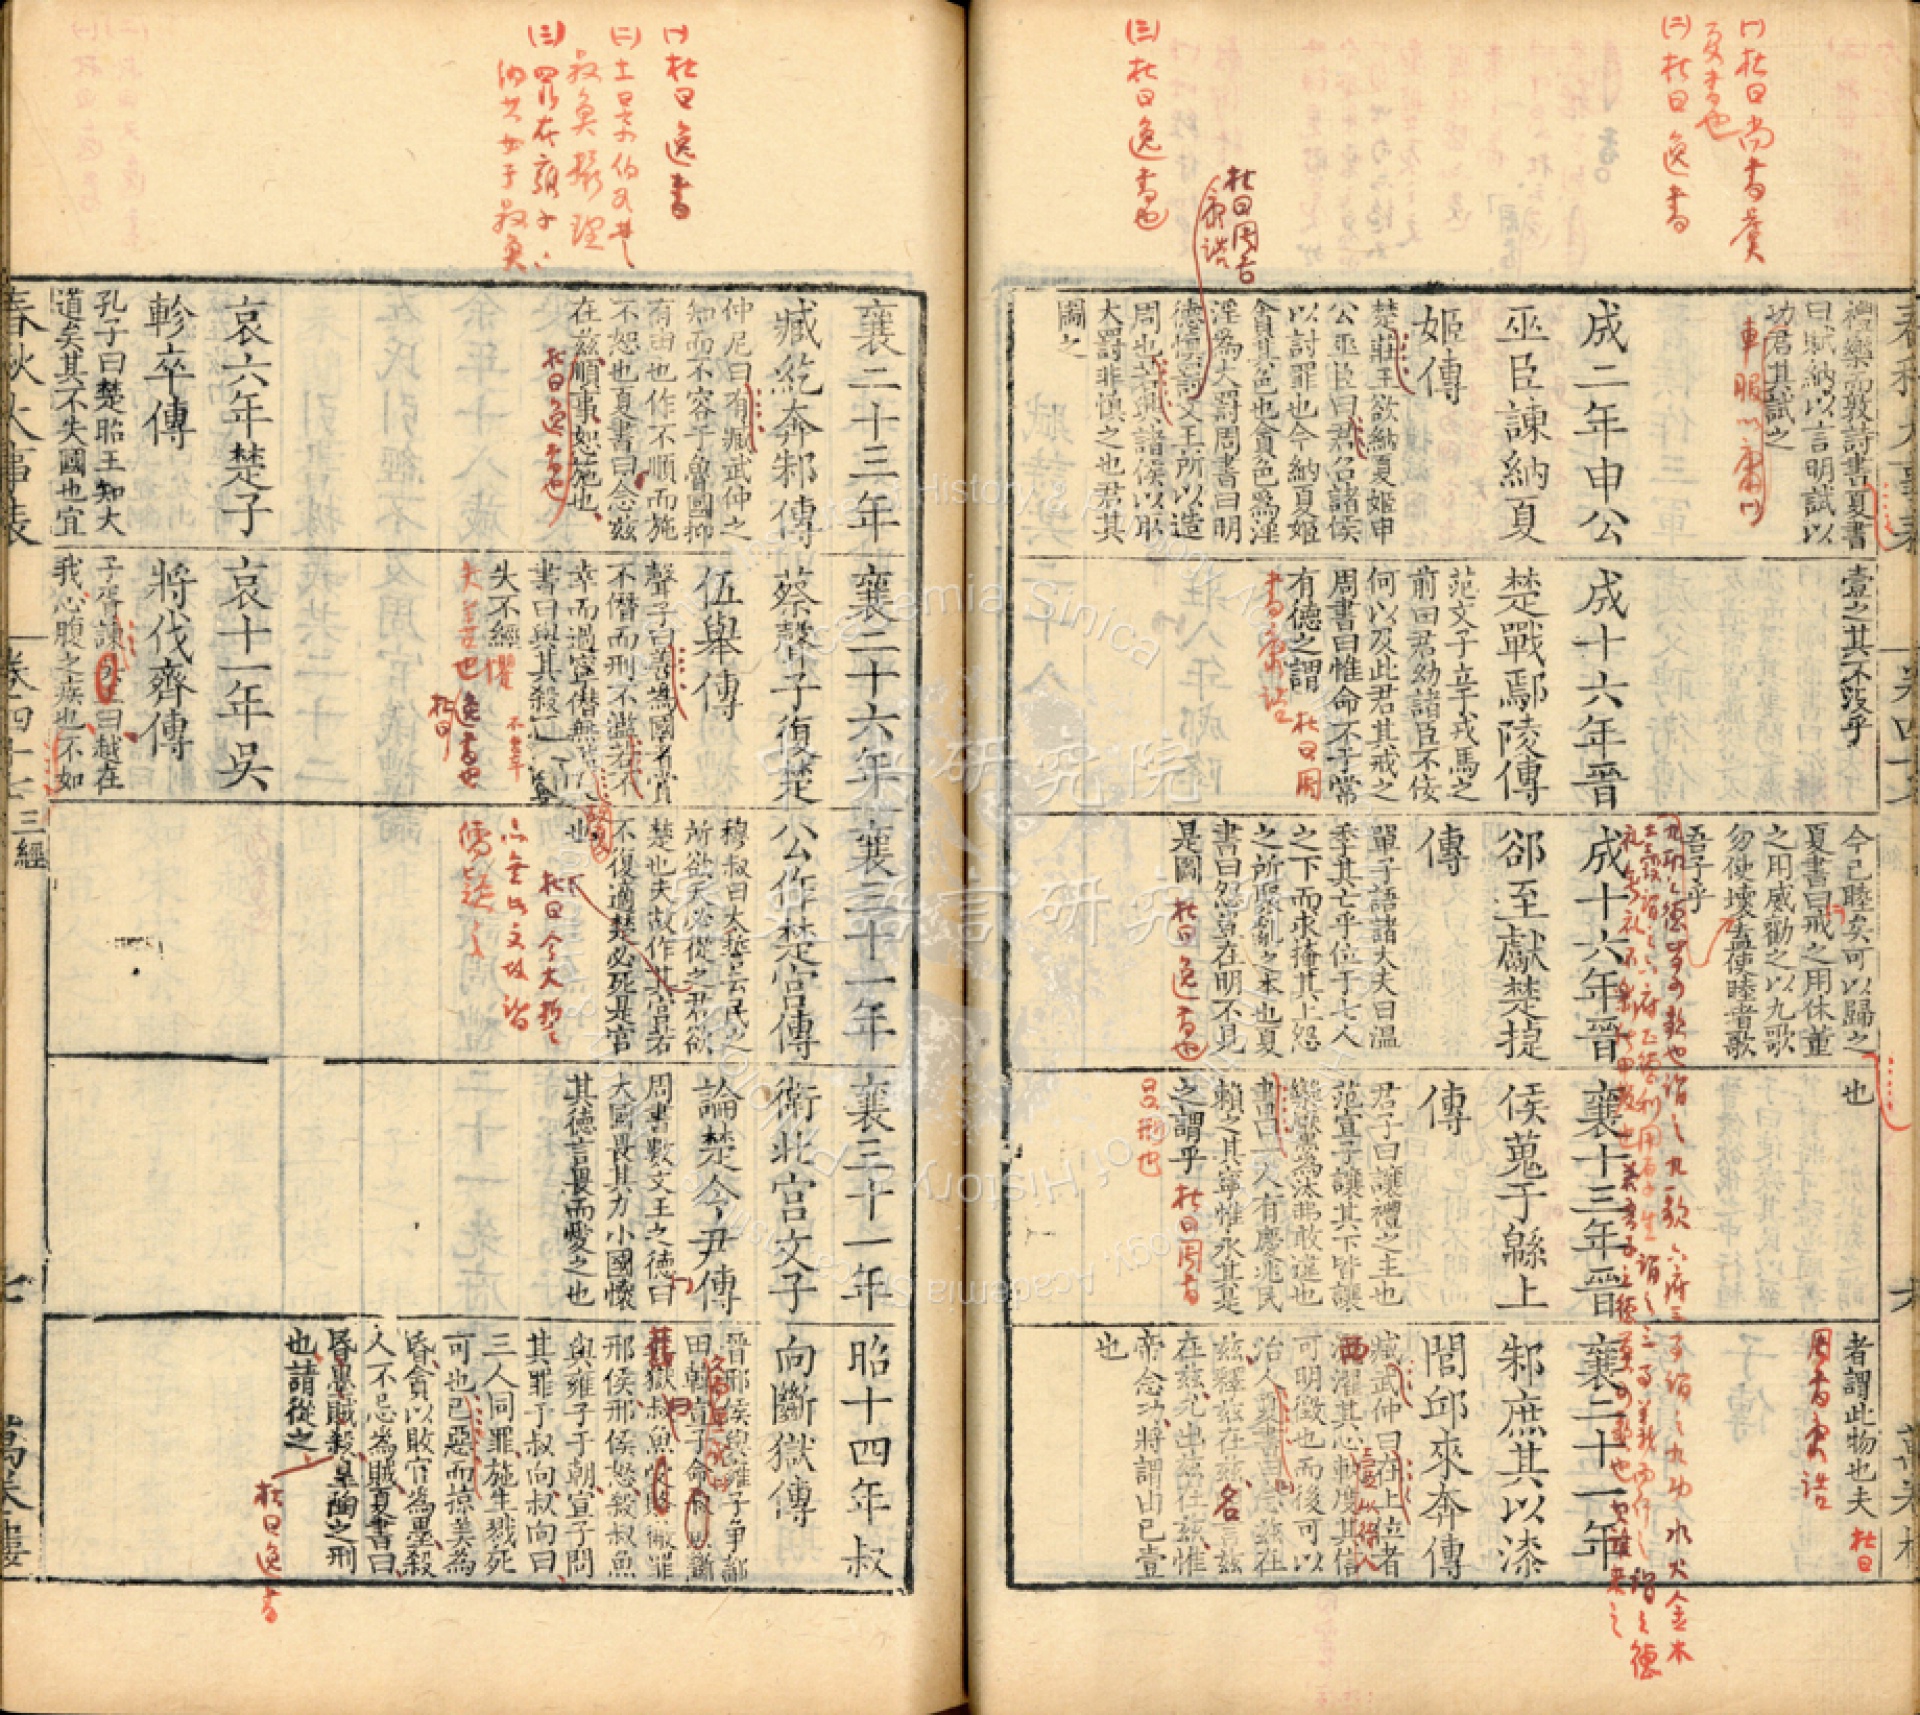 禮樂而敦詩書夏書
曰賦納以言明試以
功君其試之
成二年申公
巫臣諫納夏
姬傳
楚莊王欲納夏姬申
公巫臣曰君召諸侯
以討罪也今納夏姬
貪其色也貪色爲淫
淫爲大罰周書曰明
德慎罰文王所以造
周也若興諸侯以取
大罰非慎之也君其
圖之
壹之其不沒乎
成十六年晉
楚戰鄢陵傳
范文子立于戎馬之
前曰君幼諸臣不佞
何以及此君其戒之
周書曰惟命不于常
有德之謂
今已睦矣可以歸之
夏書曰戒之用休董
之用威勸之以九歌
勿使壞
吾子乎
成十六年晉
郤至獻楚捷
傳
單子語諸大夫曰溫
季其亡乎位于七人
之下而求掩其上怨
之所聚亂之本也夏
書曰怨豈在明不見
是圖
也
襄十三年晉
侯蒐于緜上
傳
君子曰讓禮之主也
范宣子讓其下皆讓
欒黶爲汰弗敢違也
書曰一人有慶兆民
賴之其寧惟永其是
之謂乎
者謂此物也夫
襄二十一年
邾庶其以漆
閭邱來奔傳
臧武仲曰在上位者
洒濯其心軌度其信
可明徵也而後可以
治人夏書曰念茲在
茲釋茲在茲名言茲
在茲允出茲在茲惟
帝念功將謂由已壹
也
襄二十三年
臧紇奔邾傳
仲尼曰有臧武仲之
知而不容于魯國抑
有由也作不順而施
不恕也夏書曰念茲
在茲順事恕施也
哀六年楚子
軫卒傳
孔子曰楚昭王知大
道矣其不失國也宜
襄二十六年
蔡聲子復楚
伍舉傳
聲子曰善爲國者賞
不僭而刑不濫若不
幸而過寧僭無濫
書曰與其殺
失不經
哀十一年吳
將伐齊傳
子胥諫曰越在
我心腹之疾也不如
襄三十一年
公作楚宮傳
穆叔曰大誓云民之
所欲天必從之君欲
楚也夫故作其宮若
不復適楚必死是宮
也
襄三十一年
衛北宮文子
論楚令尹傳
周書數文王之德曰
大國畏其力小國懷
其德言畏而愛之也
昭十四年叔
向斷獄傳
晉邢侯與雍子爭鄐
田韓宣子命叔魚斷
舊獄叔魚蔽罪
邢侯邢侯怒殺叔魚
與雍子于朝宣子問
其罪于叔向叔向曰
三人同罪施生戮死
可也已惡而掠美爲
昏貪以敗官爲墨殺
人不忌爲賊夏書曰
昏墨賊殺皋陶之刑
也請從之
春秋大事表
卷四十七
三經
七
萬卷樓
㈠杜曰尚書虞
夏書也
㈡杜曰逸書
㈢杜曰逸書也
杜曰周書
康誥
車服以庸
杜曰周
書康誥
杜曰逸書也
杜曰周書
呂刑也
杜曰
周書康誥
㈠杜曰逸書
㈢罪在雍子
杜曰逸書也
杜曰
逸書也
杜曰今大誓
亦無此文故諸
儒疑之
杜曰逸書